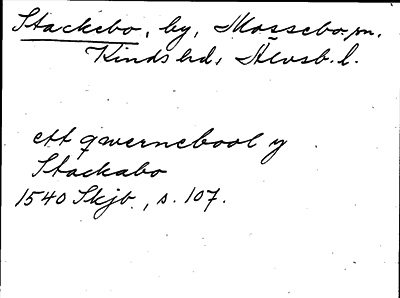 Stackebo, by, Mossebo sn.
Kinds hd, Älvsb. l.
ett qwernebool y
Stackabo
1540 Skjb., s. 107.